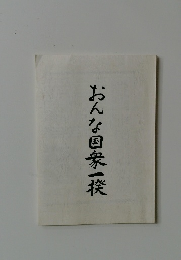 おんな国衆一揆